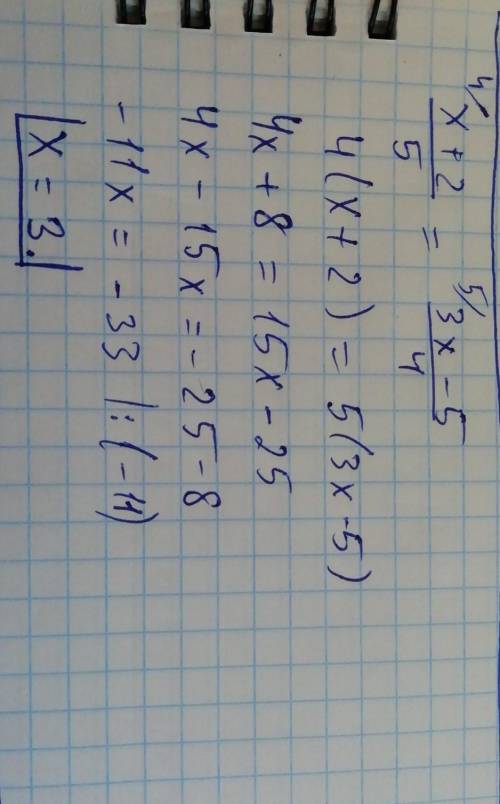 4/ x + 2 / 5 = 5/ 3x - 5 / 4
4(x + 2) = 5(3x - 5)
4x + 8 = 15x - 25
4x - 15x = - 25 - 8
- 11x = - 33 |:(-11)
x = 3.